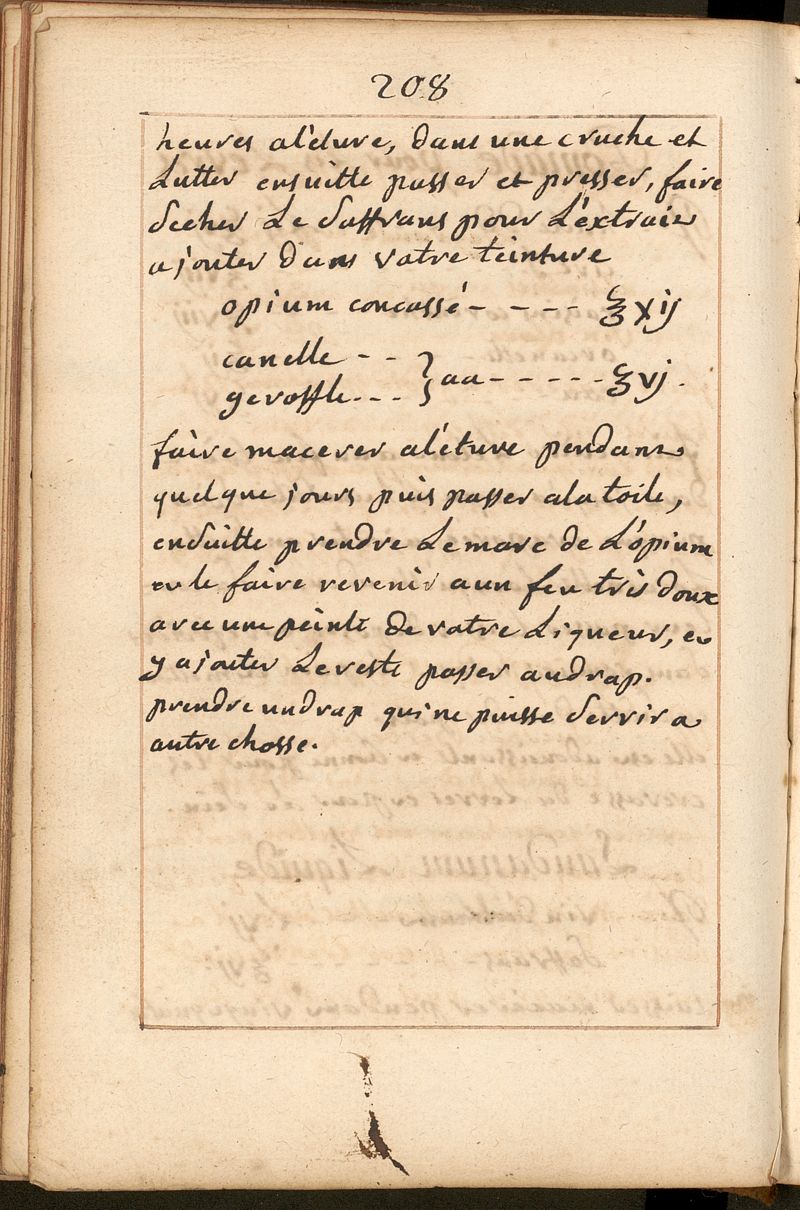 208
heures al'eture, dans une cruche et
Lutter ensuitte passer et presser, faire
secher Le saffrans pour L'éxtraire
ajouter dans votre teinture
opium concassé - - - - ℥xij
canelle - -
geroffle - - - } aa - - - - - ℥vj.
faire macerer al'éture pendant
quelque jours puis passer ala toile,
ensuitte prendre Le marc de L'ópium
et le faire revenir a un feu tres doux
avec une peinte de votre Liqueur, et
y ajouter Le reste passer au drap.
prendre un drap qui ne puisse servir a
autre chosse.